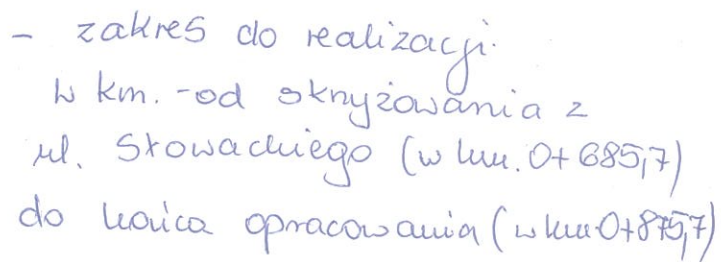 - zakres do realizacji.
w km. - od skrzyżowania z
ul. Słowackiego (w km. 0+685,7)
do końca opracowania (w km 0+875,7)